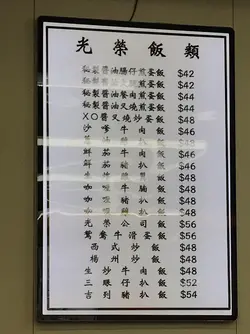 光榮飯類
秘製醬油腸仔煎蛋飯 $42
秘製醬油火腿煎蛋飯 $42
秘製醬油餐肉煎蛋飯 $44
秘製醬油叉燒煎蛋飯 $44
XO醬叉燒炒蛋飯 $48
沙嗲牛肉飯 $46
茄牛肉飯 $46
鮮牛飯 $46
牛飯 $48
咖喱牛腩飯 $48
咖喱豬扒飯 $48
光榮公司飯 $56
鴛鴦牛滑蛋飯 $56
西式炒飯 $48
楊州炒飯 $48
生炒牛肉飯 $48
眼仔飯 $52
吉列豬扒飯 $54